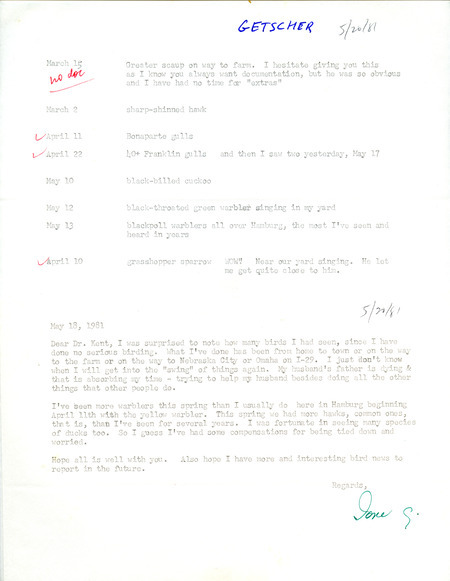 GETSCHER 5/20/81
March 15 Greater scaup on way to farm. I hesitate giving you this
no doc as I know you always want documentation, but he was so obvious
and I have had no time for "extras"
March 2 sharp-shinned hawk
✓April 11 Bonaparte gulls
✓April 22 40+ Franklin gulls and then I saw two yesterday, May 17
May 10 black-billed cuckoo
May 12 black-throated green warbler singing in my yard
May 13 blackpoll warblers all over Hamburg, the most I've seen and
heard in years
✓April 10 grasshopper sparrow WOW? Near our yard singing. He let
me get quite close to him.
5/20/81
May 18, 1981
Dear Dr. Kent, I was surprised to note how many birds I had seen, since I have
done no serious birding. What I've done has been from home to town or on the way
to the farm or on the way to Nebraska City or Omaha on I-29. I just don't know
when I will get into the "swing" of things again. My husband's father is dying &
that is absorbing my time - trying to help my husband besides doing all the other
things that other people do.
I've seen more warblers this spring than I usually do here in Hamburg beginning
April 11th with the yellow warbler. This spring we had more hawks, common ones,
that is, than I've seen for several years. I was fortunate in seeing many species
of ducks too. So I guess I've had some compensations for being tied down and
worried.
Hope all is well with you. Also hope I have more and interesting bird news to
report in the future.
Regards,
Ione G.